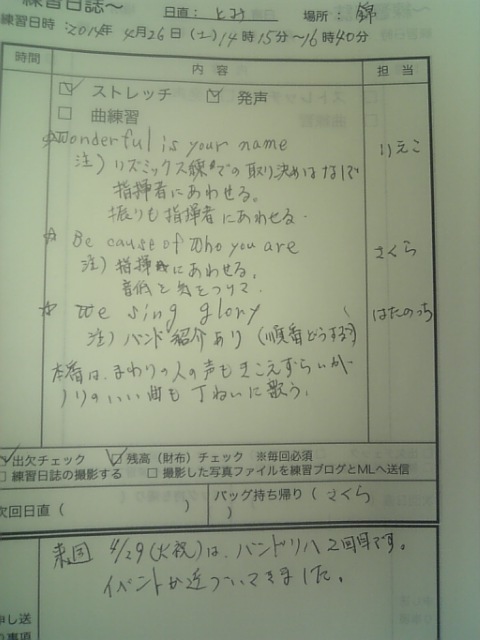 練習日誌～
日直：とみ 場所：錦
練習日時：2014年4月26日(土)14時15分～16時40分
時間 内容 担当
☑ストレッチ ☑発声
□曲練習
☆Wonderful is your name りえこ
注）リズミックス練での取り決めはなしで
指揮者にあわせる。
振りも指揮者にあわせる。
☆Because of Who you are さくら
注）指揮にあわせる。
音低と気をつけて
☆We sing glory はたのっち
注）バンド紹介あり（順番どうする？）
本番は、まわりの人の声もきこえずらいが
ノリのいい曲も丁ねいに歌う。
☑出欠チェック ☑残高（財布）チェック ※毎回必須
□練習日誌の撮影する □撮影した写真ファイルを練習ブログとMLへ送信
次回日直（ ） バッグ持ち帰り（さくら
）
来週 4/29(火祝)は、バンドリハ2回目です。
イベントが近づいてきました。
申し送
り事項